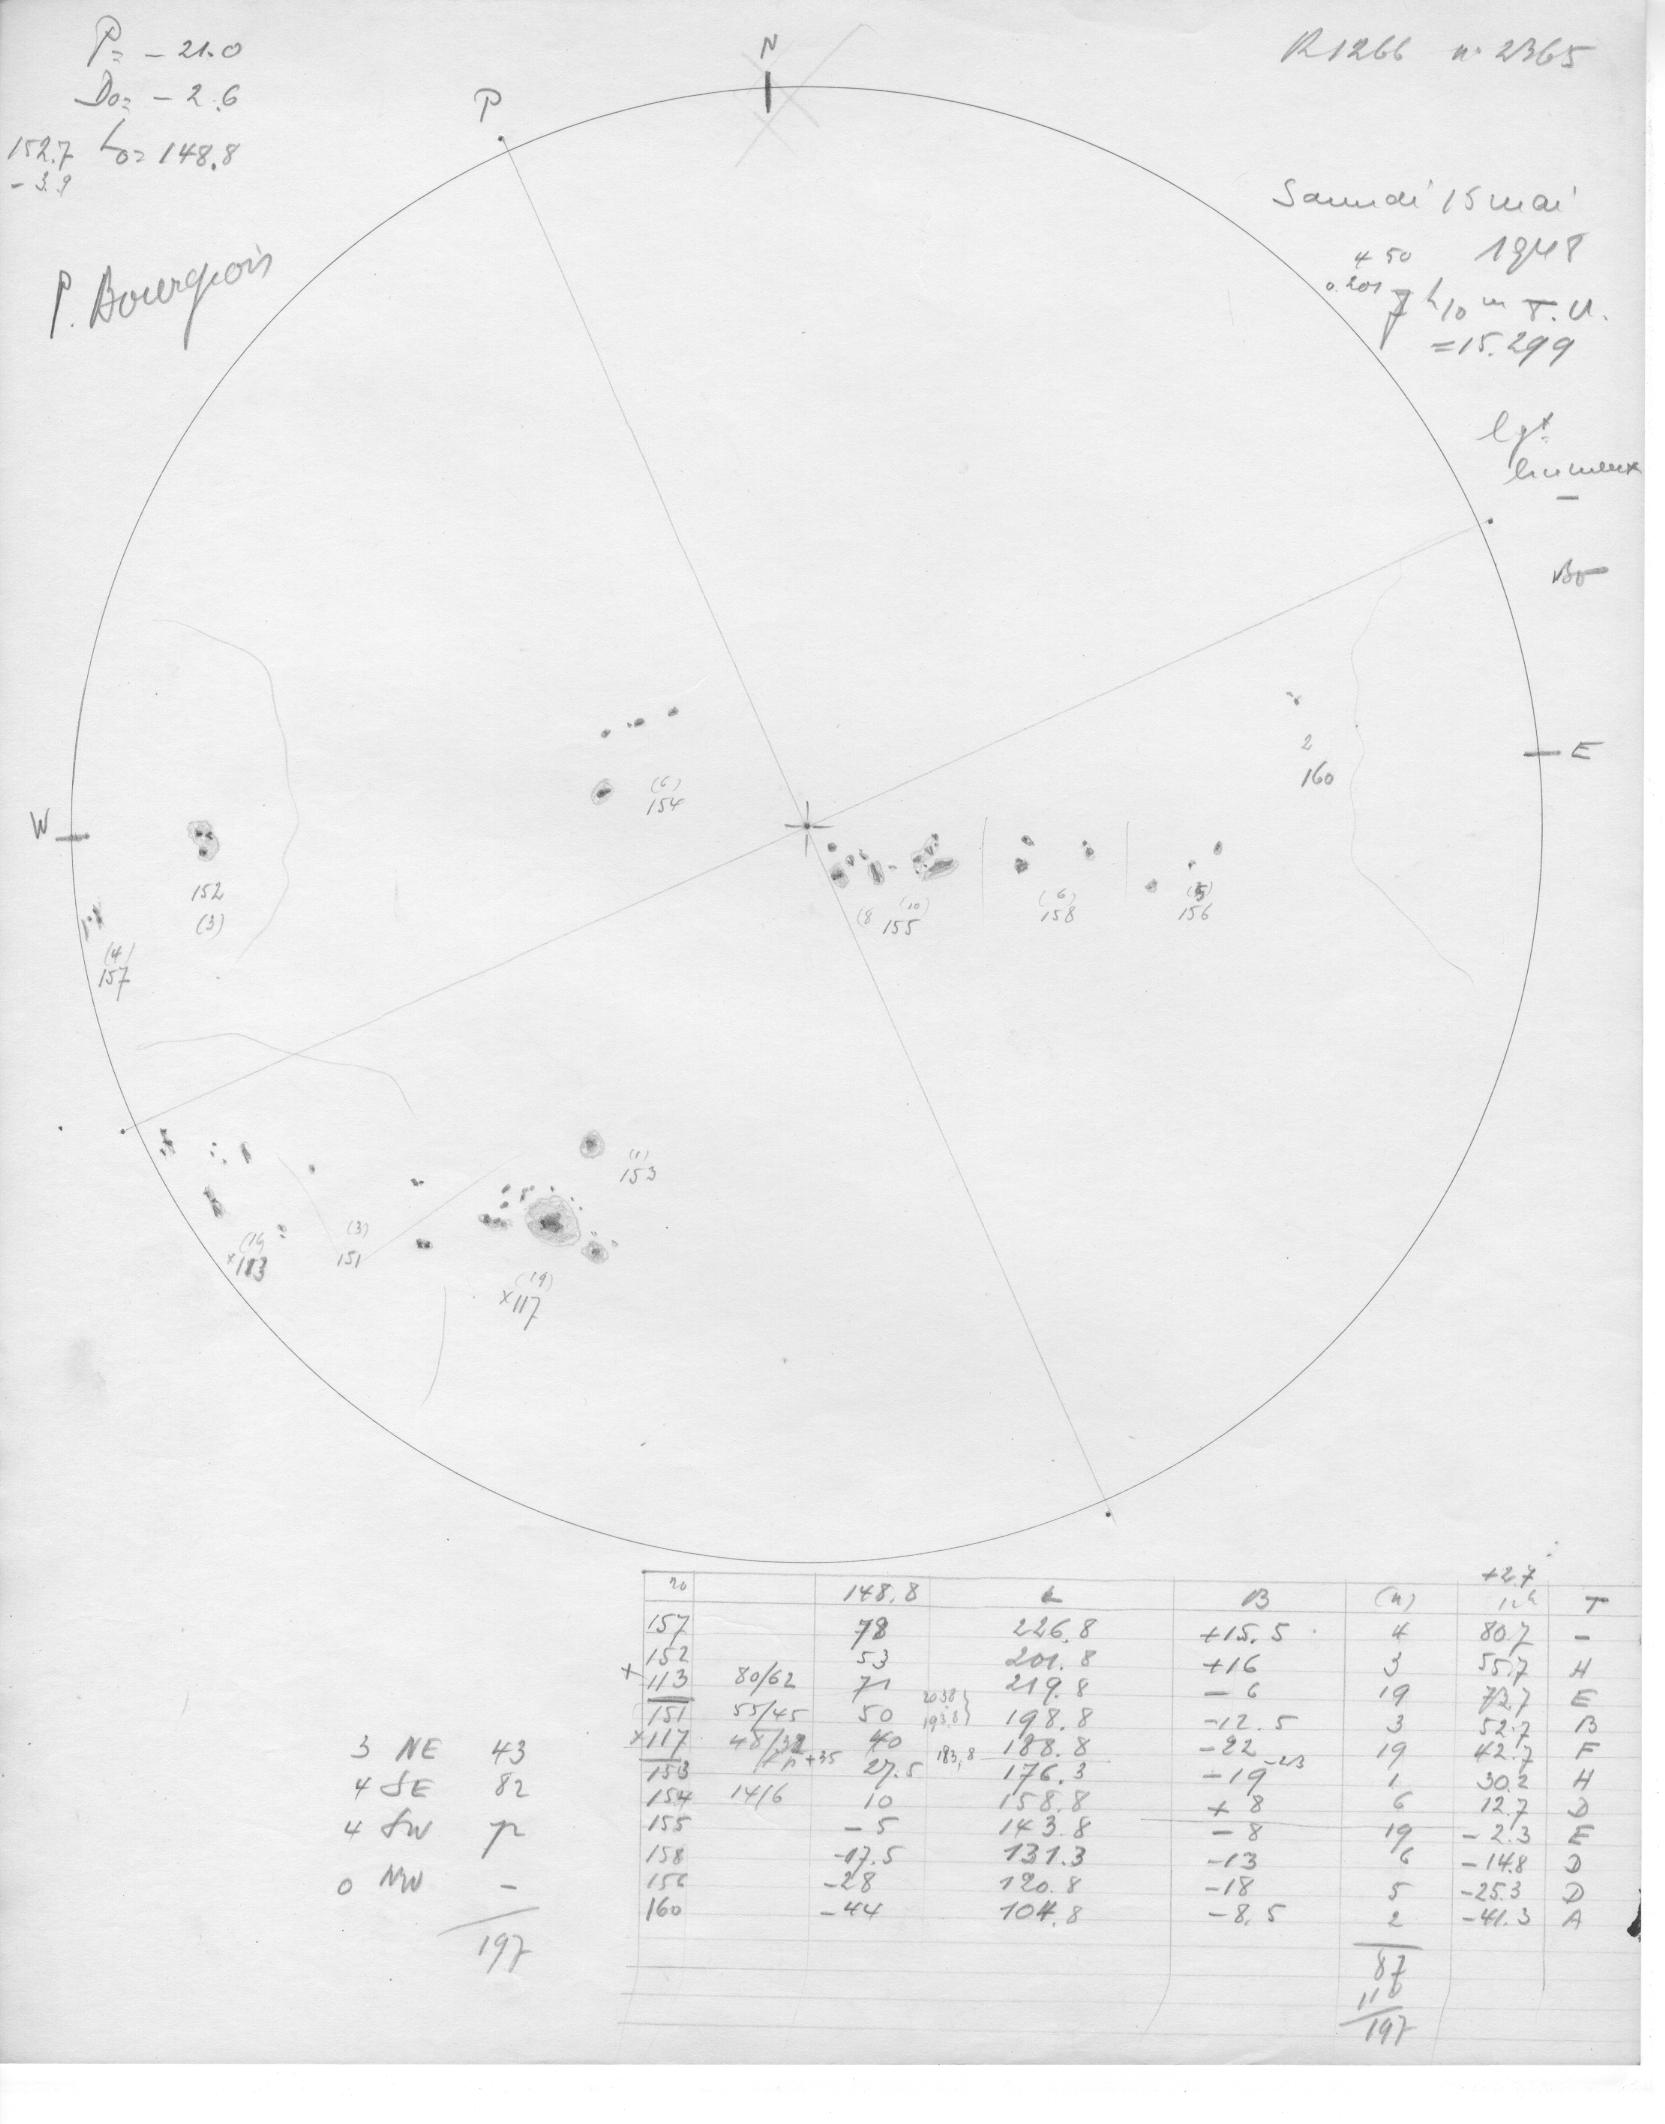 P = - 21.0
D0 = - 2.6
152.7 L0 = 148.8
- 3.9
P. Bourgeois
P
N
R1266 n° 2365
Samedi 15 mai
1948
4 50
0.201 7 h 10 m T.U.
= 15.299
lgt
brumeux
E
W
(6)
154
2
160
152
(3)
(4)
157
(10)
(8 155
(6)
158
(5)
156
(1)
153
(19)
x 117
(3)
151
x 113
+2.7
no 148.8 L B (n) T
157 78 226.8 +15.5 4 80.7 -
152 53 201.8 +16 3 55.7 H
x 113 80/62 71 219.8 - 6 19 73.7 E
151 55/45 50 203.8 193.8 } 198.8 -12.5 3 52.7 B
x 117 48/32 40 188.8 -22 19 42.7 F
+35 183.8 -23
153 27.5 176.3 -19 1 30.2 H
154 14/6 10 158.8 + 8 6 12.7 D
155 - 5 143.8 - 8 19 - 2.3 E
158 -17.5 131.3 -13 6 -14.8 D
156 -28 120.8 -18 5 -25.3 D
160 -44 104.8 -8.5 2 -41.3 A
87
110
197
3 NE 43
4 SE 82
4 SW
0 NW -
197